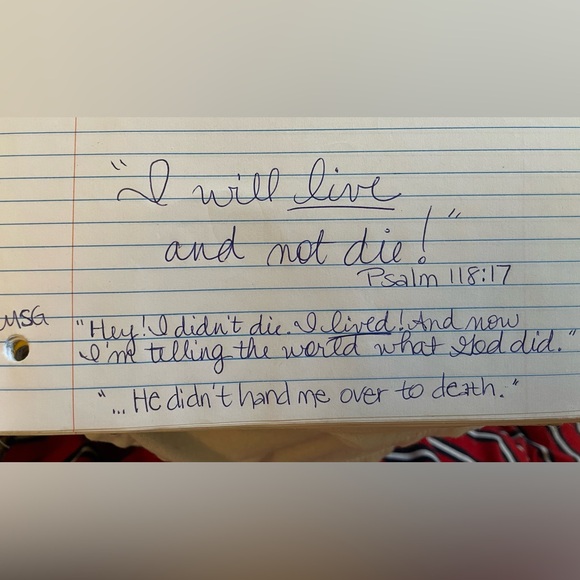 "I will live
and not die!"
Psalm 118:17
MSG "Hey! I didn't die. I lived! And now
I'm telling the world what God did."
"... He didn't hand me over to death."